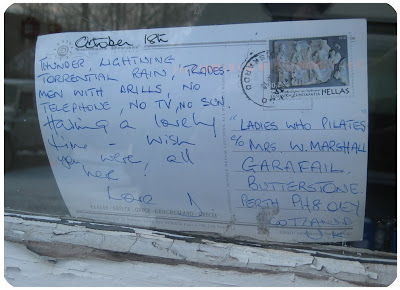 October 18th
THUNDER, LIGHTNING
TORRENTIAL RAIN, TRADES-
MEN WITH DRILLS, NO
TELEPHONE, NO TV, NO SUN.
Having a lovely
time - wish
you were, all
here!
Love
HELLAS
LADIES WHO PILATES
c/o MRS. W. MARSHALL
GARAFAIL
BUTTERSTONE
PERTH PH8 0EY
SCOTLAND
U.K